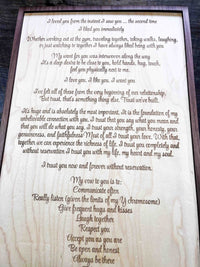 I loved you from the instant I saw you ... the second time
I liked you immediately
Whether working out at the gym, traveling together, taking walks, laughing,
or just watching tv together I have always liked being with you
My want for you was interwoven along the way
It's a deep desire to be close to you, hold hands, hug, touch,
feel you physically next to me.
I love you, I like you, I want you.
I've felt all of those from the very beginning of our relationship,
But trust, that's something things else. Trust we've built.
It's huge and is absolutely the most important. It is the foundation of my
unbelievable connection with you. I trust that you say what you mean and
that you will do what you say. I trust your strength, your honesty, your
openness, and faithfulness Most of all I trust your love. With that,
together we can experience the richness of life. I trust you completely and
without reservation I trust you with my life, my heart and my soul.
I trust you now and forever without reservation.
My vow to you is to:
Communicate often
Really listen (given the limits of my Y chromosome)
Give frequent hugs and kisses
Laugh together
Respect you
Accept you as you are
Be open and honest
Always be there